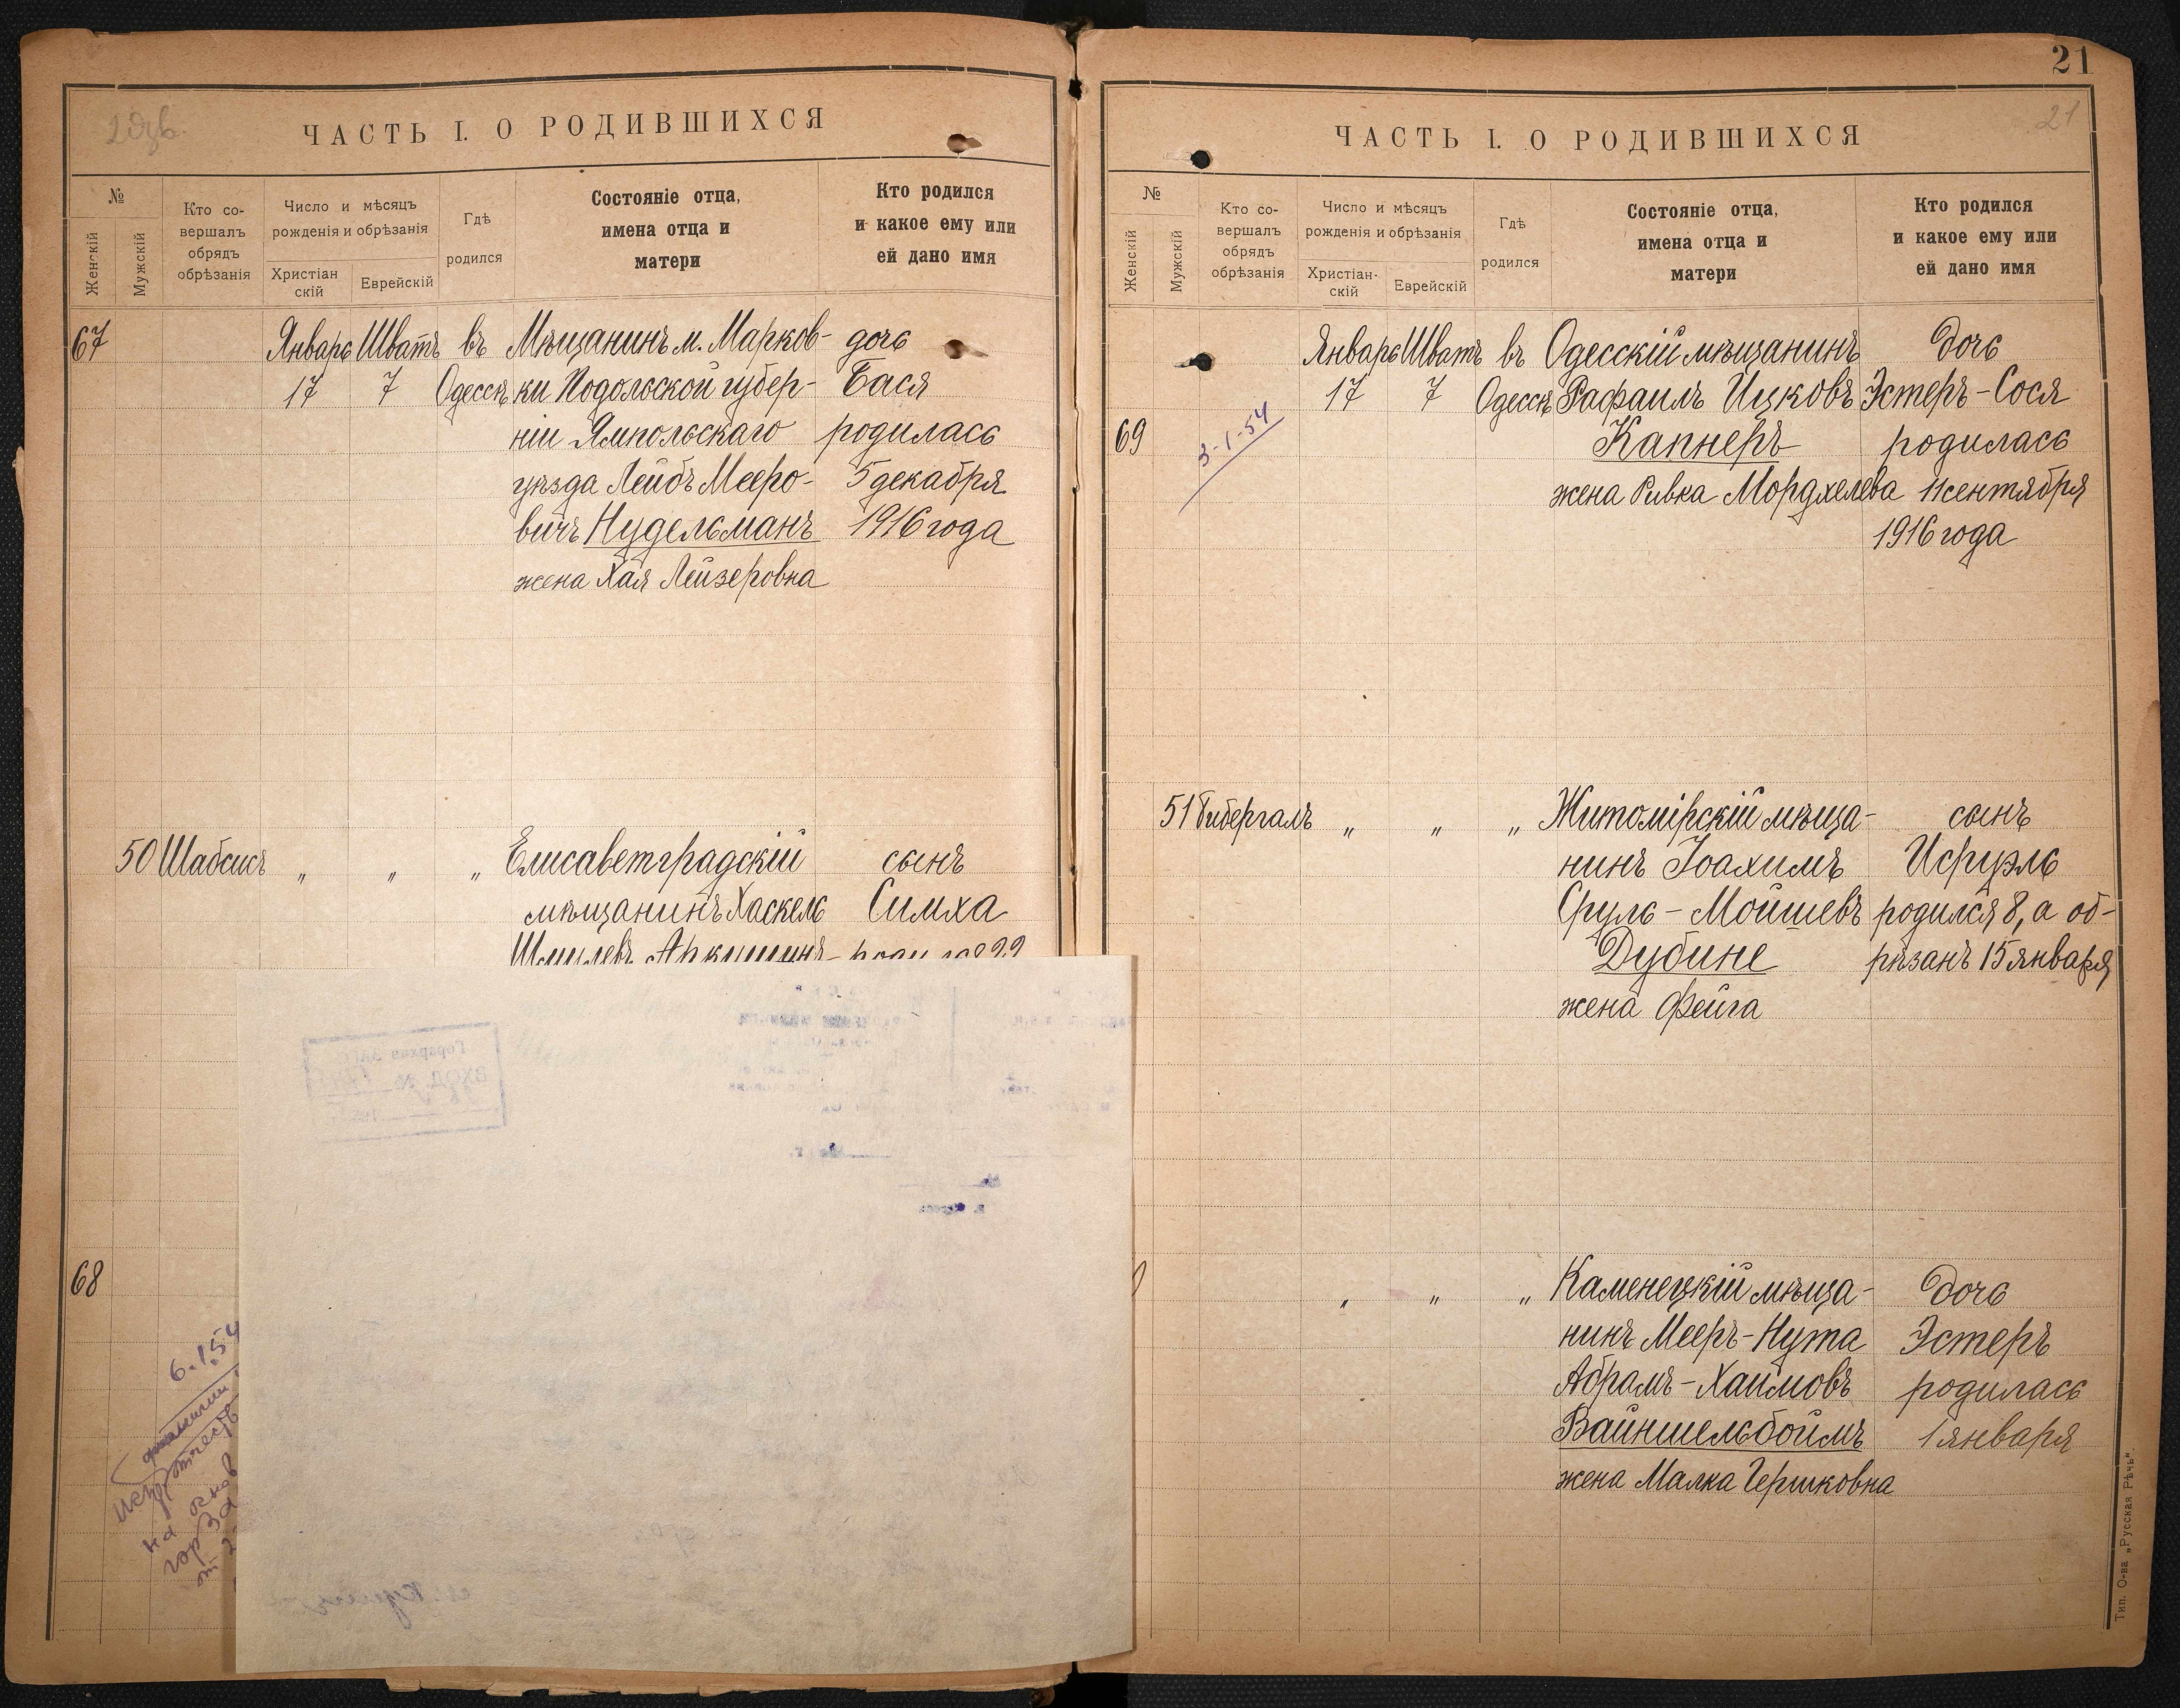 2 экз.
ЧАСТЬ I. О РОДИВШИХСЯ
№
Женскій
Мужскій
Кто со-
вершалъ
обрядъ
обрѣзанія
Число и мѣсяцъ
рожденія и обрѣзанія
Христіан
скій
Еврейскій
Гдѣ
родился
Состояніе отца,
имена отца и
матери
Кто родился
и какое ему или
ей дано имя
67 Январь Шватъ въ Мѣщанинъ м. Марков- дочь
17 7 Одессѣ ки Подольской губер- Бася
ніи Ямпольскаго родилась
уѣзда Лейбъ Мееро- 5 декабря
вичъ Нудельманъ 1916 года
жена Хая Лейзеровна
50 Шабсисъ " " " Елисаветградскій сынъ
мѣщанинъ Хаскель Симха
Шмулевъ
68
6.1.54
фамилии
на основ
ВХОД №
21
21
ЧАСТЬ I. О РОДИВШИХСЯ
№
Женскій
Мужскій
Кто со-
вершалъ
обрядъ
обрѣзанія
Число и мѣсяцъ
рожденія и обрѣзанія
Христіан-
скій
Еврейскій
Гдѣ
родился
Состояніе отца,
имена отца и
матери
Кто родился
и какое ему или
ей дано имя
Январь Шватъ въ Одесскій мѣщанинъ дочь
17 7 Одессѣ Рафаилъ Ицковъ Эстеръ-Сося
69 Капнеръ родилась
3-1-54
жена Ривка Мордхелева 11 сентября
1916 года
51 Гибергалъ " " " Житомірскій мѣща- сынъ
нинъ Іоахимъ Исруэль
Сруль-Мойшевъ родился 8, а об-
Дубине рѣзанъ 15 января
жена Фейга
" " " Каменецкій мѣща- дочь
нинъ Мееръ-Нута Эстеръ
Абрамъ-Хаимовъ родилась
Вайншельбоймъ 1 января
жена Малка Гершковна
Тип. О-ва „Русская Рѣчь“.